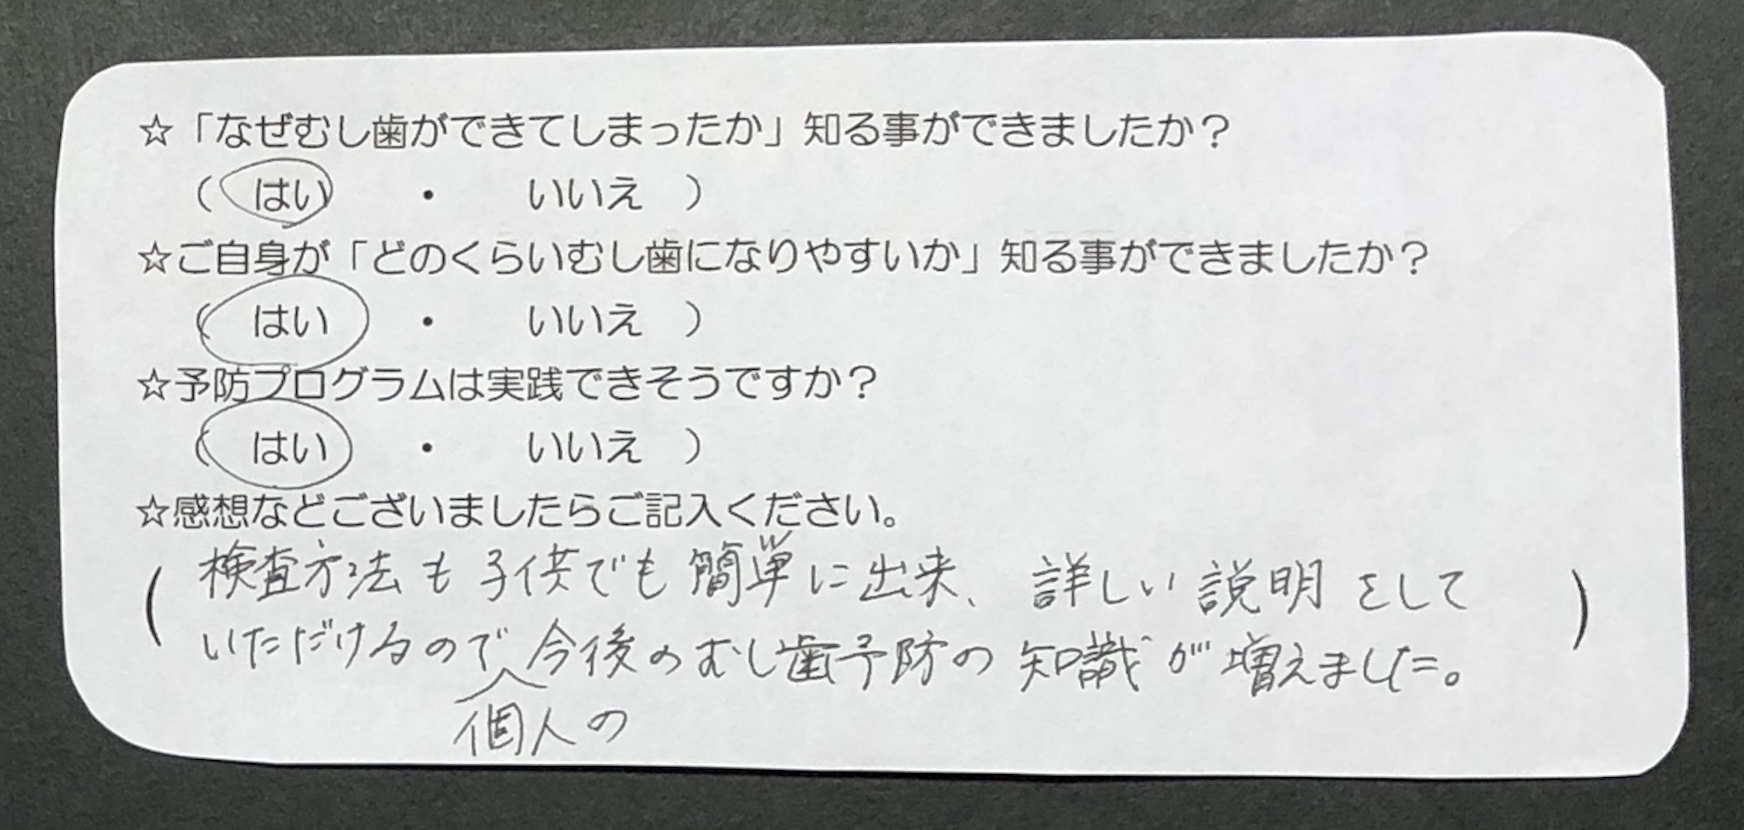 ☆「なぜむし歯ができてしまったか」知る事ができましたか？
（　はい　・　いいえ　）
☆ご自身が「どのくらいむし歯になりやすいか」知る事ができましたか？
（　はい　・　いいえ　）
☆予防プログラムは実践できそうですか？
（　はい　・　いいえ　）
☆感想などございましたらご記入ください。
（検査方法も子供でも簡単に出来、詳しい説明をして）
いただけるので今後のむし歯予防の知識が増えました。
個人の